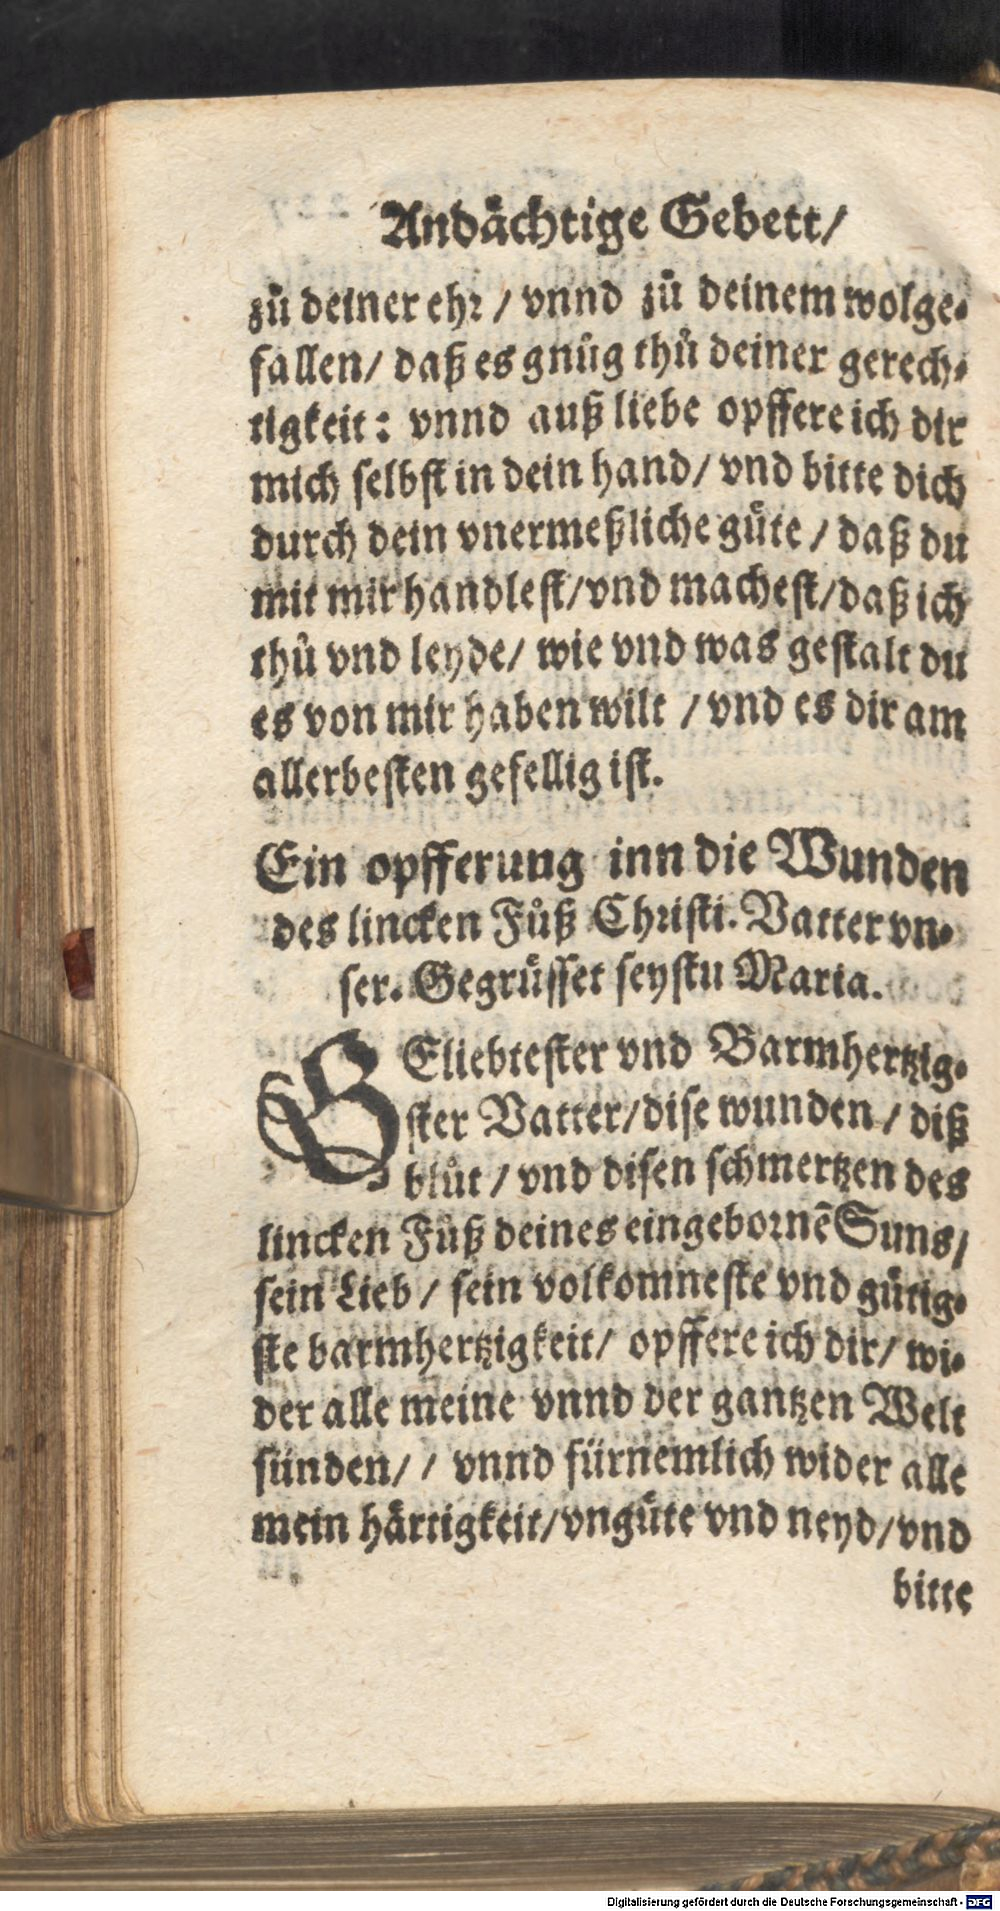 Andächtige Gebett/
zů deiner ehr / vnnd zů deinem wolge-
fallen/ daß es gnůg thů deiner gerech-
tigkeit: vnnd auß liebe opffere ich dir
mich selbst in dein hand/ vnd bitte dich
durch dein vnermeßliche gůte / daß du
mit mir handlest/vnd machest/daß ich
thů vnd leyde/ wie vnd was gestalt du
es von mir haben wilt / vnd es dir am
allerbesten gefellig ist.
Ein opfferung inn die Wunden
des lincken Fůß Christi. Vatter vn-
ser. Gegrüsset seystu Maria.
GEliebtester vnd Barmhertzig-
ster Vatter/dise wunden / diß
blůt / vnd disen schmertzen des
lincken Fůß deines eingebornē Suns/
sein Lieb / sein volkomneste vnd gütig-
ste barmhertzigkeit/ opffere ich dir/ wi-
der alle meine vnnd der gantzen Welt
sünden/ / vnnd fürnemlich wider alle
mein härtigkeit/vngüte vnd neyd/vnd
bitte
Digitalisierung gefördert durch die Deutsche Forschungsgemeinschaft - DFG